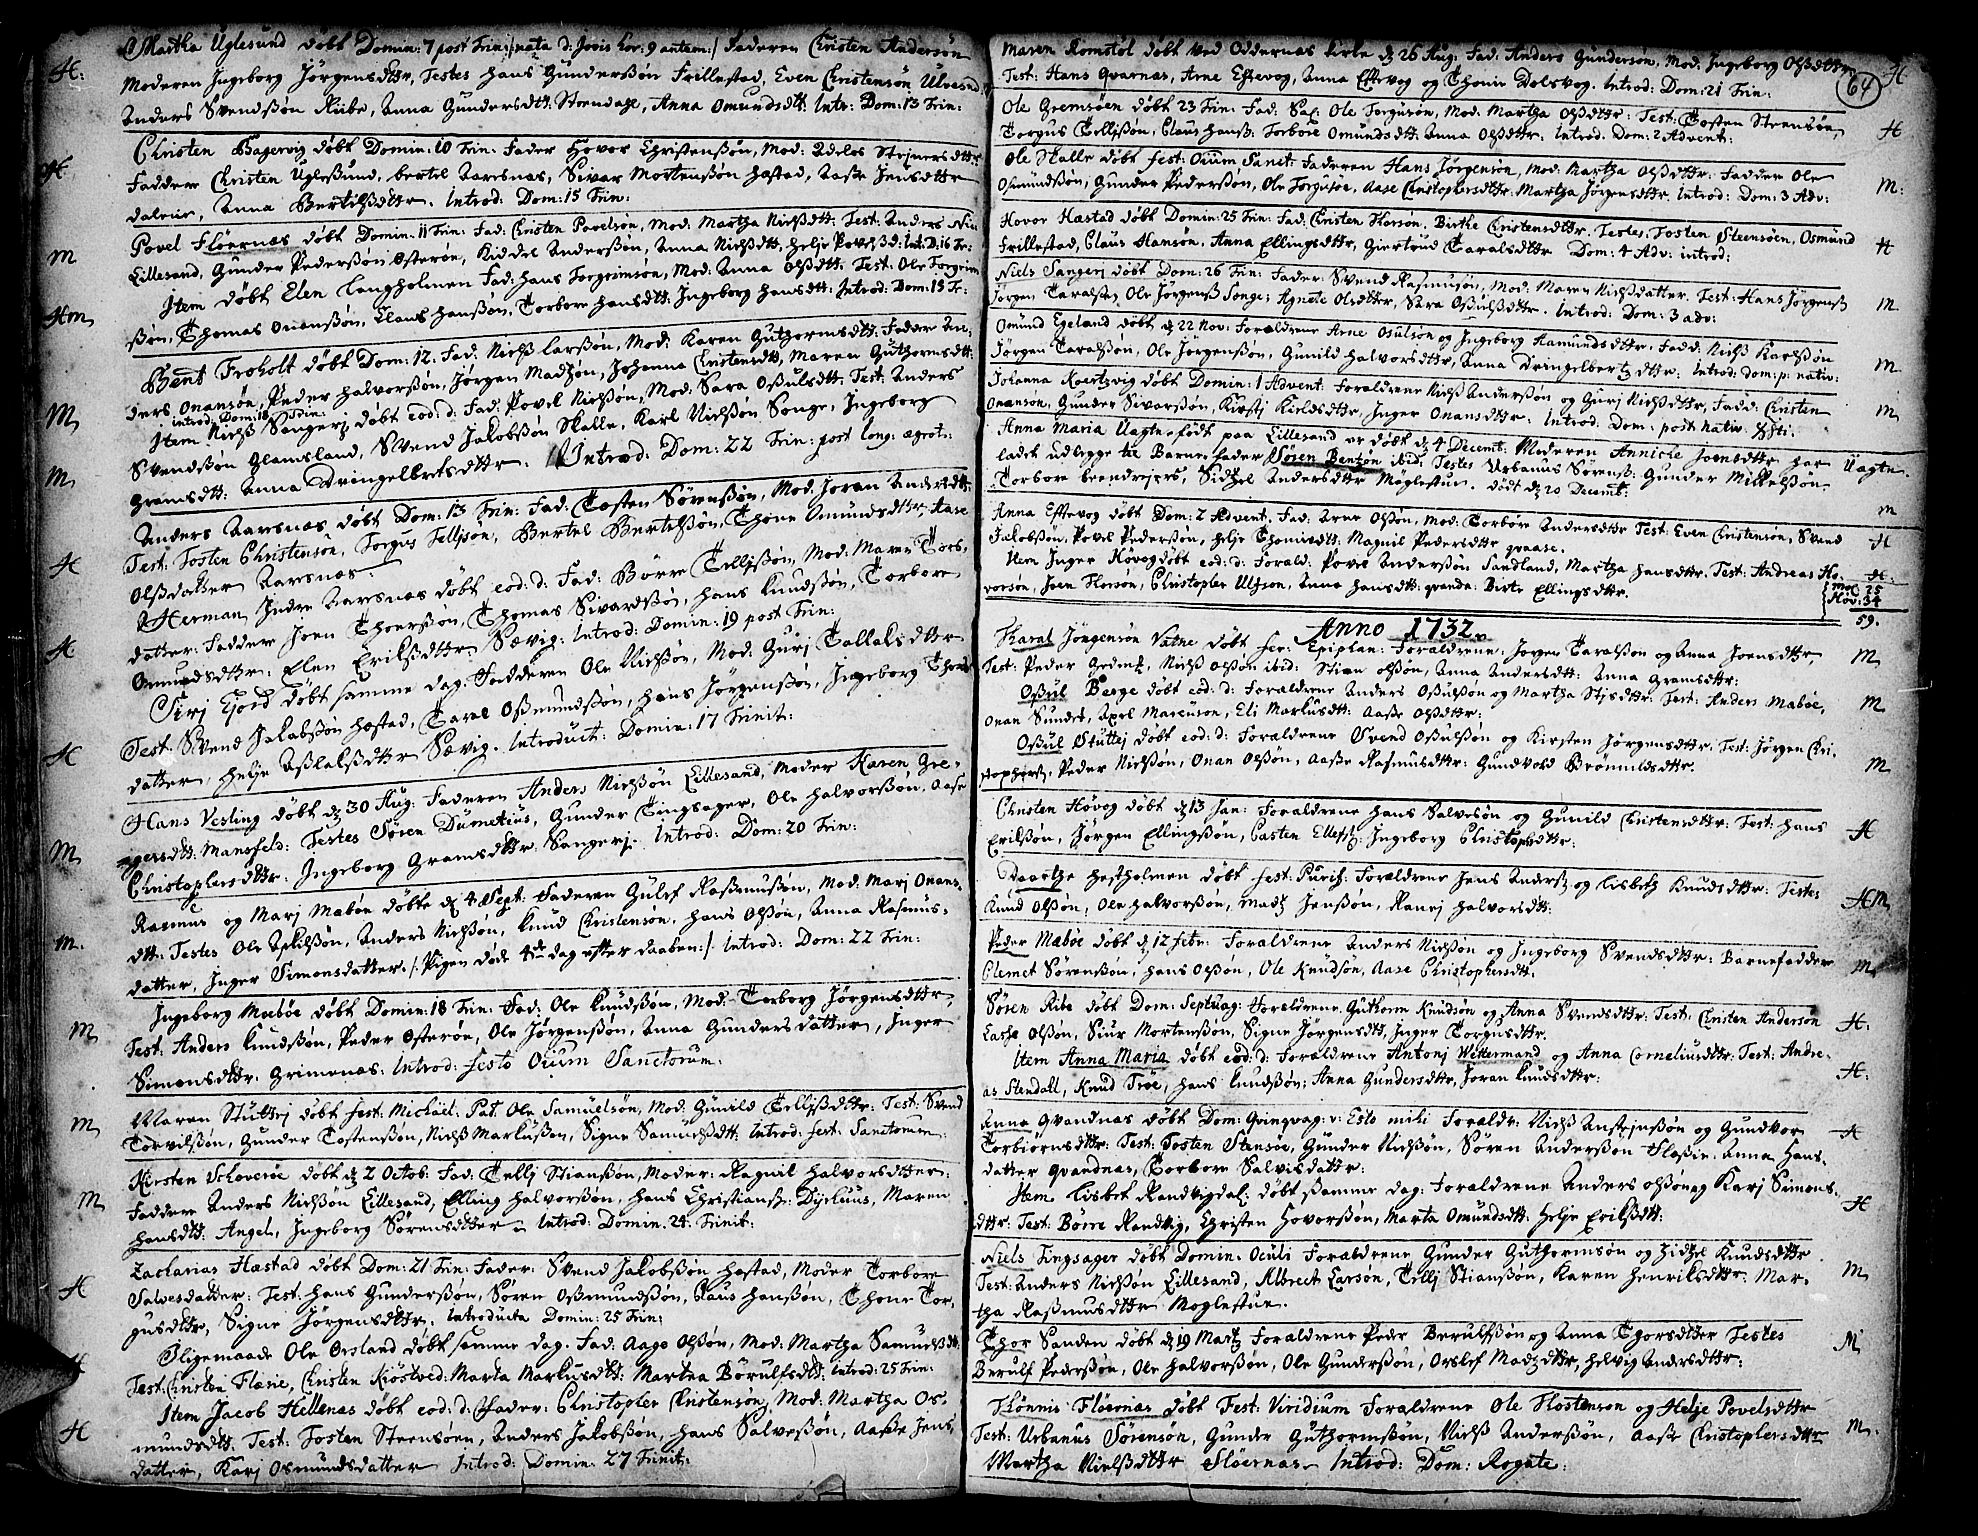 Martha Uglesund døbt Domin: 7 post Trin: /: nata d: Jovis hor: 9 antem: / Faderen Christen Andersøn
H: Moderen Ingeborg Jörgensdttr, Testes Hans Gunderssøn Frillestad, Even Christensøn Ulvesund
Anders Svendssøn Ribe, Anna Gundersdtt: Steendahl, Anna Omundsdtt: Intr: Dom: 13 Trin:
Christen Hagervig døbt Domin: 10 Trin: Fader Hovor Christenssøn, Mod: Edelos Stejnersdttr
H. Faddere Christen Uglessund, Bertel Aarsnas, Sivar Mortenssøn Hæstad, Aasse Jensdttr
dalene, Anna Bertilssdttr. Introd: Dom: 15 Trin:
Povel Flöernæs døbt Domin: 11 Trin: Fad: Christen Povelsøn, Mod: Martha Nielssdtt: Test: Anders
M Lillesand, Gunder Pederssøn Osterøn, Kiddel Anderssøn, Anna Nielssdtt, Helje Povelssd: Int: D: 16 Tr:
Item døbt Elen Langholmen Fad: Hans Torgrimsøn, Mod: Anna Olssdtt: Test: Ole Torgrim
HM ssøn, Thomas Onanssøn, Claus Hanssøn, Torbore Hansdtt: Ingeborg Hansdtt: Introd: Dom: 15 Tr:
Bent Froholt døbt Dom: 12. Fad: Nielss Larssøn, Mod: Karen Guthormsdtt: Faddere An,
M ders Onansøn, Peder Halvorssøn, Jörgen Madssøn, Johanna Christensdtt, Maren Guthormsdtt:
introd: Dom: 18 Trin:
Item Nielss Sangerj døbt eod: d: Fad: Povel Nielssøn, Mod: Sara Ossulsdtt: Test: Anders
M Svendssøn Glamsland, Svend Jakobssøn Skalle, Karl Nielssøn Songe, Ingeborg
Gramsdtt: Anna Dringelbertsdttr. Introd: Dom: 22 Trin: post long: ægrot:
Anders Aarsnas døbt Dom: 13 Trin: Fad: Tosten Sørenssøn, Mod: Joran Andersdtt:
H Test: Tosten Christensøn, Torgus Telljsøn, Bertel Bertelssøn, Thone Omundsdttr, Aase
Olssdatter Aarsnas.
Herman Indre Aarsnas døbt eod: d: Fad: Börre Telljssøn, Mod: Maren Tors,
H datter: Faddere Joen Thorssøn, Thomas Sivardssøn, Hans Knudssøn, Torbore
Omundsdttr, Elen Erikssdttr Sævig: Introd: Domin: 19 post Trin:
Sirj Fjord døbt samme dag. Faderen Ole Nielssøn, Mod: Gurj Tallaksdttr
H Test: Svend Jakobssøn Hæstad, Tarel Ossmundssøn, Hans Jörgenssøn, Ingeborg Thors
datter, Helje Asslakssdttr Sævig. Introduct: Domin: 17 Trinit:
Hans Vesling døbt d 30 Aug. Faderen Anders Nielssøn Lillesand, Moder Karen Gre-
M gersdtt: Mansfeld: Testes Søren Dumetius, Gunder Tingsager, Ole Halvorssøn, Aase
Christophersdttr: Ingeborg Gramsdttr: Sangerj. Introd: Dom: 20 Trin:
Rasmus og Marj Mæbøe døbte d 4 Sept: Faderen Gulef Rassmussøn, Mod: Marj Onans,
M. dtt: Testes Ole Askilssøn, Anders Nielssøn, Knud Christensøn, Hans Olssøn, Anna Rasmus-
datter, Inger Simonsdatter. /: Pigen døde 4de dag efter daaben: / Introd: Dom: 22 Trin:
Ingeborg Mæbøe døbt Domin: 18 Trin: Fad: Ole Knudssøn, Mod: Torborg Jörgensdttr,
M Test: Anders Knudssøn, Peder Osterøn, Ole Jörgenssøn, Anna Gundersdatter, Inger
Simonsdttr: Grimenæs: Introd: festo Oium Sanctorum:
Maren Stuttej døbt fest: Michael: Pat: Ole Samuelsøn, Mod: Gunild Telljssdttr: Test: Svend
M Torvilssøn, Gunder Tostenssøn, Nielss Markussøn, Signe Samuelsdtt: Introd: fest: Sanctorum
Kirsten Schoverøe døbt d 2 Octob. Fad: Tellj Stianssøn, Moder: Ragnil Halvorsdtter:
M Faddere Anders Nielssøn Lillesand, Elling Halvorssøn, Hans Christianss: Dychuus, Maren
Hansdtt: Angel, Ingeborg Sørensdtter. Introd: Domin: 24. Trinit:
Zacharias Hæstad døbt Dom: 21 Trin: Fader: Svend Jakobssøn Hæstad, Moder Torbore
H Salvesdatter: Test: Hans Gunderssøn, Søren Ossmundssøn, Claus Hanssøn, Thone Tor,
gusdttr, Signe Jörgensdttr. Introducta Domin: 25 Trin:
Sligemaade Ole Orsland døbt samme dag. Fad: Aage Olssøn, Mod: Martha Samuelssdtt.
H Test: Christen Flæsie, Christen Kiöstved: Marta Markusdtt: Martha Börulfsdtt: Introd: 25 Trin:
Item Jacob Hellenæs døbt eod: d: Fader: Christopher Christensøn, Mod: Martha Os,
H mundsdtt: Test: Tosten Steensøen, Anders Jakobssøn, Hans Salvessøn, Aasse Jens
datter, Karj Osmundsdatter Introd: Domin: 27 Trinit:
64
Maren Romstøl døbt ved Oddernæs kirke d 26 Aug: Fad: Anders Gundersøn, Mod: Ingeborg Olssdttr H
Test: Hans Qvarnæs, Arne Eftevog, Anna Eftevog og Thonie Dolsvog. Introd: Dom: 21 Trin:
Ole Gremsöen døbt 23 Trin: Fad: Sal: Ole Torgusøn, Mod: Martha Olssdttr: Test: Tosten Steensøn, H
Torgus Telljssøn, Claus Hanss: Torbore Omundsdtt: Anna Olssdttr: Introd: Dom: 2 Advent:
Ole Skalle døbt fest: Oium Sanct: Faderen Hans Jörgensøn, Mod: Martha Olssdttr: Faddere Ole M:
Osmundssøn, Gunder Pederssøn, Ole Torgusøn, Aase Christophersdttr: Martha Jörgensdttr: Introd: Dom: 3 Adv:
Hovor Hæstad døbt Domin: 25 Trin: Fad: Christen Thorsøn, Birthe Christensdttr. Testes, Tosten Steensøen, Osmund H
Frillestad, Claus Hansøn, Anna Ellingsdttr, Giertrud Taralsdttr Dom: 4 Adv: introd:
Niels Sangerj døbt Dom: 26 Trin: Fader Svend Rasmusøn, Mod: Maren Nielssdatter. Test: Hans Jörgenss M
Jörgen Taralss, Ole Jörgenss Songe; Agnete Olsdtter, Sara Ossulssdttr. Introd: Dom: 3 adv:
Omund Egeland døbt d 22 Nov: Forældrene Arne Osulson og Ingeborg Aamundsdttr: Fadd: Nielss Karlssøn M
Jörgen Taralssøn, Ole Jörgenssøn, Gunild Halvorsdttr, Anna Dringelbertz dttr: Introd: dom: p: nativ:
Johanna Kaertzvig døbt Domin: 1 Advent: Forældrene Nielss Anderssøn og Gurj Nielssdttr, Fadd: Christen M
Onanson, Gunder Sivarssøn, Kirstj Kieldsdttr, Inger Onansdttr. Introd: Dom: post nativ: Xsti.
Anna Maria Uægte. født paa Lillesand er døbt d 4 Decemb: Moderen Annicke Joensdttr har Uægte.
ladet udlegge til Barnefader Søren Bentzøn ibid: Testes Urbanus Sørenss: Gunder Mikkelssøn,
Torbore brendejers, Sidzel Andersdttr Møglestue. dødt d 20 Decemb: M
Anna Eftevog døbt Dom: 2 Advent. Fad: Arne Olssøn, Mod: Torbor Andersdttr Test: Even Christensøn, Svend H
Jakobssøn, Povel Pedersøn, Helje Thomisdtt: Magnil Pedersdttr qvaase.
Item Inger Høvog døbt eod: d: Forald: Povel Anderssøn Sandland, Maritha Hansdttr. Test: Andreas Ho. H:
vorsøn, Joen Thorsøn, Christopher Ulfson, Anna Hansdtt: qvanda: Birte Ellingsdttr. Moe 25
Höv: 34
59.
Anno 1732
Tharal Jöngensøn Vatne døbt fer: Epiphan: Forældrene: Jörgen Taralssøn og Anna Joensdttr, M
Test: Peder Grdentz, Nielss Olssøn ibid: Stian Olssøn, Anna Andersdtt: Anna Gramsdttr:
Ossul Berge døbt eod: d: Forældrene Anders Ossulsøn og Martha Stisdttr: Test: Anders Mæbøe, M
Onan Sundet, Axel Marcuson, Eli Markusdtt: Aasse Olssdttr:
Ossul Stuttej døbt eod: d: Forældrene Svend Ossulssøn og Kirsten Jörgensdttr: Test: Jörgen Chri-
stopherss, Peder Nielssøn, Onan Olssøn, Aasse Rasmusdttr: Gundvold Brömulfsdttr. M
Christen Høvog døbt d 13 Jan: Forældrene Hans Salvesøn og Gunild Christensdttr: Test: Hans H
Erikssøn, Jörgen Ellingssøn, Casten Ellefss: Ingeborg Christophsdttr:
Daarthe Hestholmen døbt fest: Purif: Forældrene Jens Anderss og Lisbeth Knudsdttr: Testes HM
Knud Olssøn, Ole Halvorssøn, Madz Jenssøn, Ranej Halvorsdtt:
Peder Mæbøe døbt d 12 febr: Forældrene Anders Nielssøn og Ingeborg Svendsdttr: Barnefaddere M
Clemet Sørenssøn, Hans Olssøn, Ole Knudsøn, Aase Christophersdtt.
Søren Ribe døbt Dom: Septuag: Forældrene Guthorm Knudsøn og Anna Svendsdttr: Test: Christen Andersøn H.
Lasse Olssøn, Siur Mortenssøn, Signe Jörgensdtt, Inger Torgusdttr.
Item Anna Maria døbt eod: d: Forældrene Antonj Wettermand og Anna Corneliusdttr: Test: Andre- H.
as Stendall, Knud Tröe, Hans Knudssøn; Anna Gundersdttr, Joran Knudsdttr:
Anna Qvandnæs døbt Dom: Qvinqvag: v: Esto mihi Foraldr: Nielss Anstejnssøn og Gundvor H
Torbiörnsdttr: Test: Tosten Stensøe, Gunder Nielssøn, Søren Anderssøn Flæsie: Anna Hans-
datter Qvandnæs, Torbore Salvisdattr:
Item Lisbet Randvigdal: døbt ssamme dag: Forældrene Anders Olssøn og Karj Simons, H
dttr: Test: Börre Randvig, Christen Hovorssøn, Marta Omundsdtt: Helje Erikssdtt:
Niels Tingsager døbt Domin. Oculi Forældrene Gunder Guthormsøn og Zidzel Knudsdttr M
Test: Anders Nielssøn Lillesand, Albrect Larsøn, Tellj Stianssøn, Karen Henriksdttr: Mar-
tha Rassmusdttr Moglestue.
Thor Sanden døbt d 19 Martj Forældrene Peder Berulfssøn og Anna Tgorsdtter Testes M
Berulf Pederssøn, Ole Halvorssøn, Ole Gunderssøn, Orslef Madzdttr, Helvig Andersdttr:
Thönnis Flöernæs døbt Fest: Viridium Forældrene Ole Thostensøn og Helje Povelsdttr
Test: Urbanus Sörenson, Gunder Guthormssøn, Nielss Anderssøn, Aasse Christophersdttr M.
Martha Nielssdttr Flöernæs. Introd: Dom: Rogate: